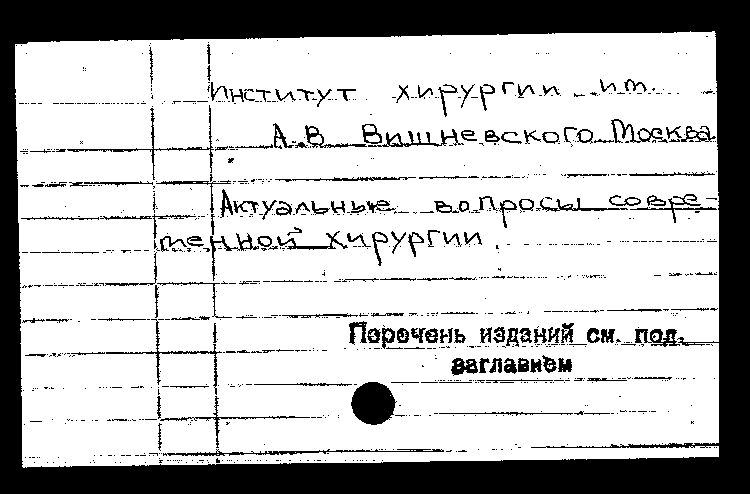 Институт хирургии им.
А.В Вишневского Москва
Актуальные вопросы совре-
менной хирургии.
Перечень изданий см. под.
заглавием